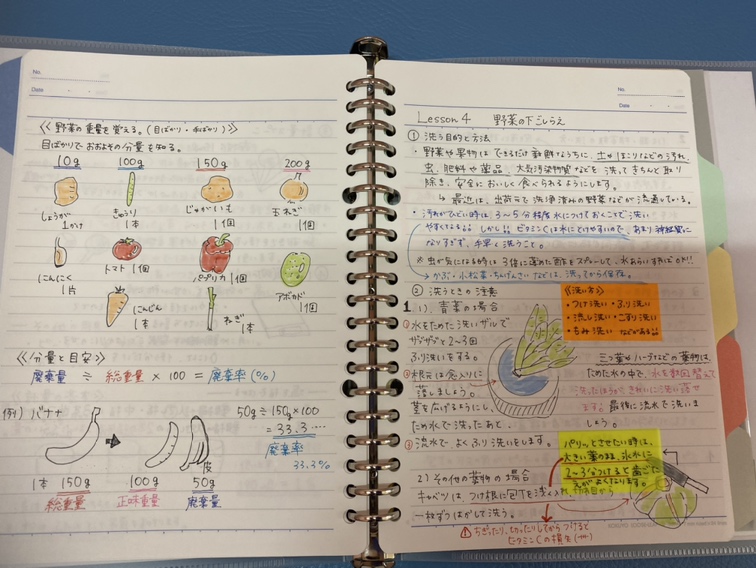 No.
Date
《野菜の重量を覚える。(目ばかり・手ばかり)》
目ばかりでおおよその分量を知る。
10g 100g 150g 200g
しょうが 1かけ
きゅうり 1本
じゃがいも 1個
玉ねぎ 1個
にんにく 1片
トマト 1個
パプリカ 1個
アボカド 1個
にんじん 1本
ねぎ 1本
《分量と目安》
廃棄量 ÷ 総重量 × 100 = 廃棄率(%)
例) バナナ
50g ÷ 150g × 100
= 33.3....
廃棄率
33.3%
皮
1本 150g 100g 50g
総重量 正味重量 廃棄量
No.
Date
Lesson 4 野菜の下ごしらえ
① 洗う目的と方法
・野菜や果物はできるだけ新鮮なうちに、土やほこりなどの汚れ、
虫、肥料や薬品、大気汚染物質などを洗ってきちんと取り
除き、安全においしく食べられるようにします。
↳ 最近は、出荷元で洗浄済みの野菜などが流通している。
・汚れがひどい時は3~5分程度水につけておくことで洗い
やすくなる!! しかし!! ビタミンCは水にとけやすいので、あまり神経質に
なりすぎず、手早く洗うこと。
※虫が気になる時は3倍に薄めた酢をスプレーして、水洗いすればOK!!
→かぶ・小松菜・ちんげんさいなどは、洗ってから保存。
② 洗うときの注意
1). 青菜の場合
① 水をためた洗いザルで
ザブザブと2~3回
ふり洗いをする。
② 根元は念入りに
落しましょう。
茎を広げるようにし、
ため水で洗ったあと、
③ 流水でよくふり洗いをします。
《洗い方》
・つけ洗い・ふり洗い
・流し洗い・こすり洗い
・もみ洗い などがある!!
三つ葉やハーブなどの葉物は
ため水の中で、水を数回替えて
洗ったほうがきれいに洗い落せ
ます。最後に流水で洗いま
しょう。
パリッとさせたい時は、
大きい葉のまま、氷水に
2~3分つけると歯ごた
えがよくなります。
2) その他の葉物の場合
キャベツは、つけ根に包丁を浅く入れ、
一枚ずつはがして洗う。
ちぎったり、切ったりしてからつけると
ビタミンCの損失